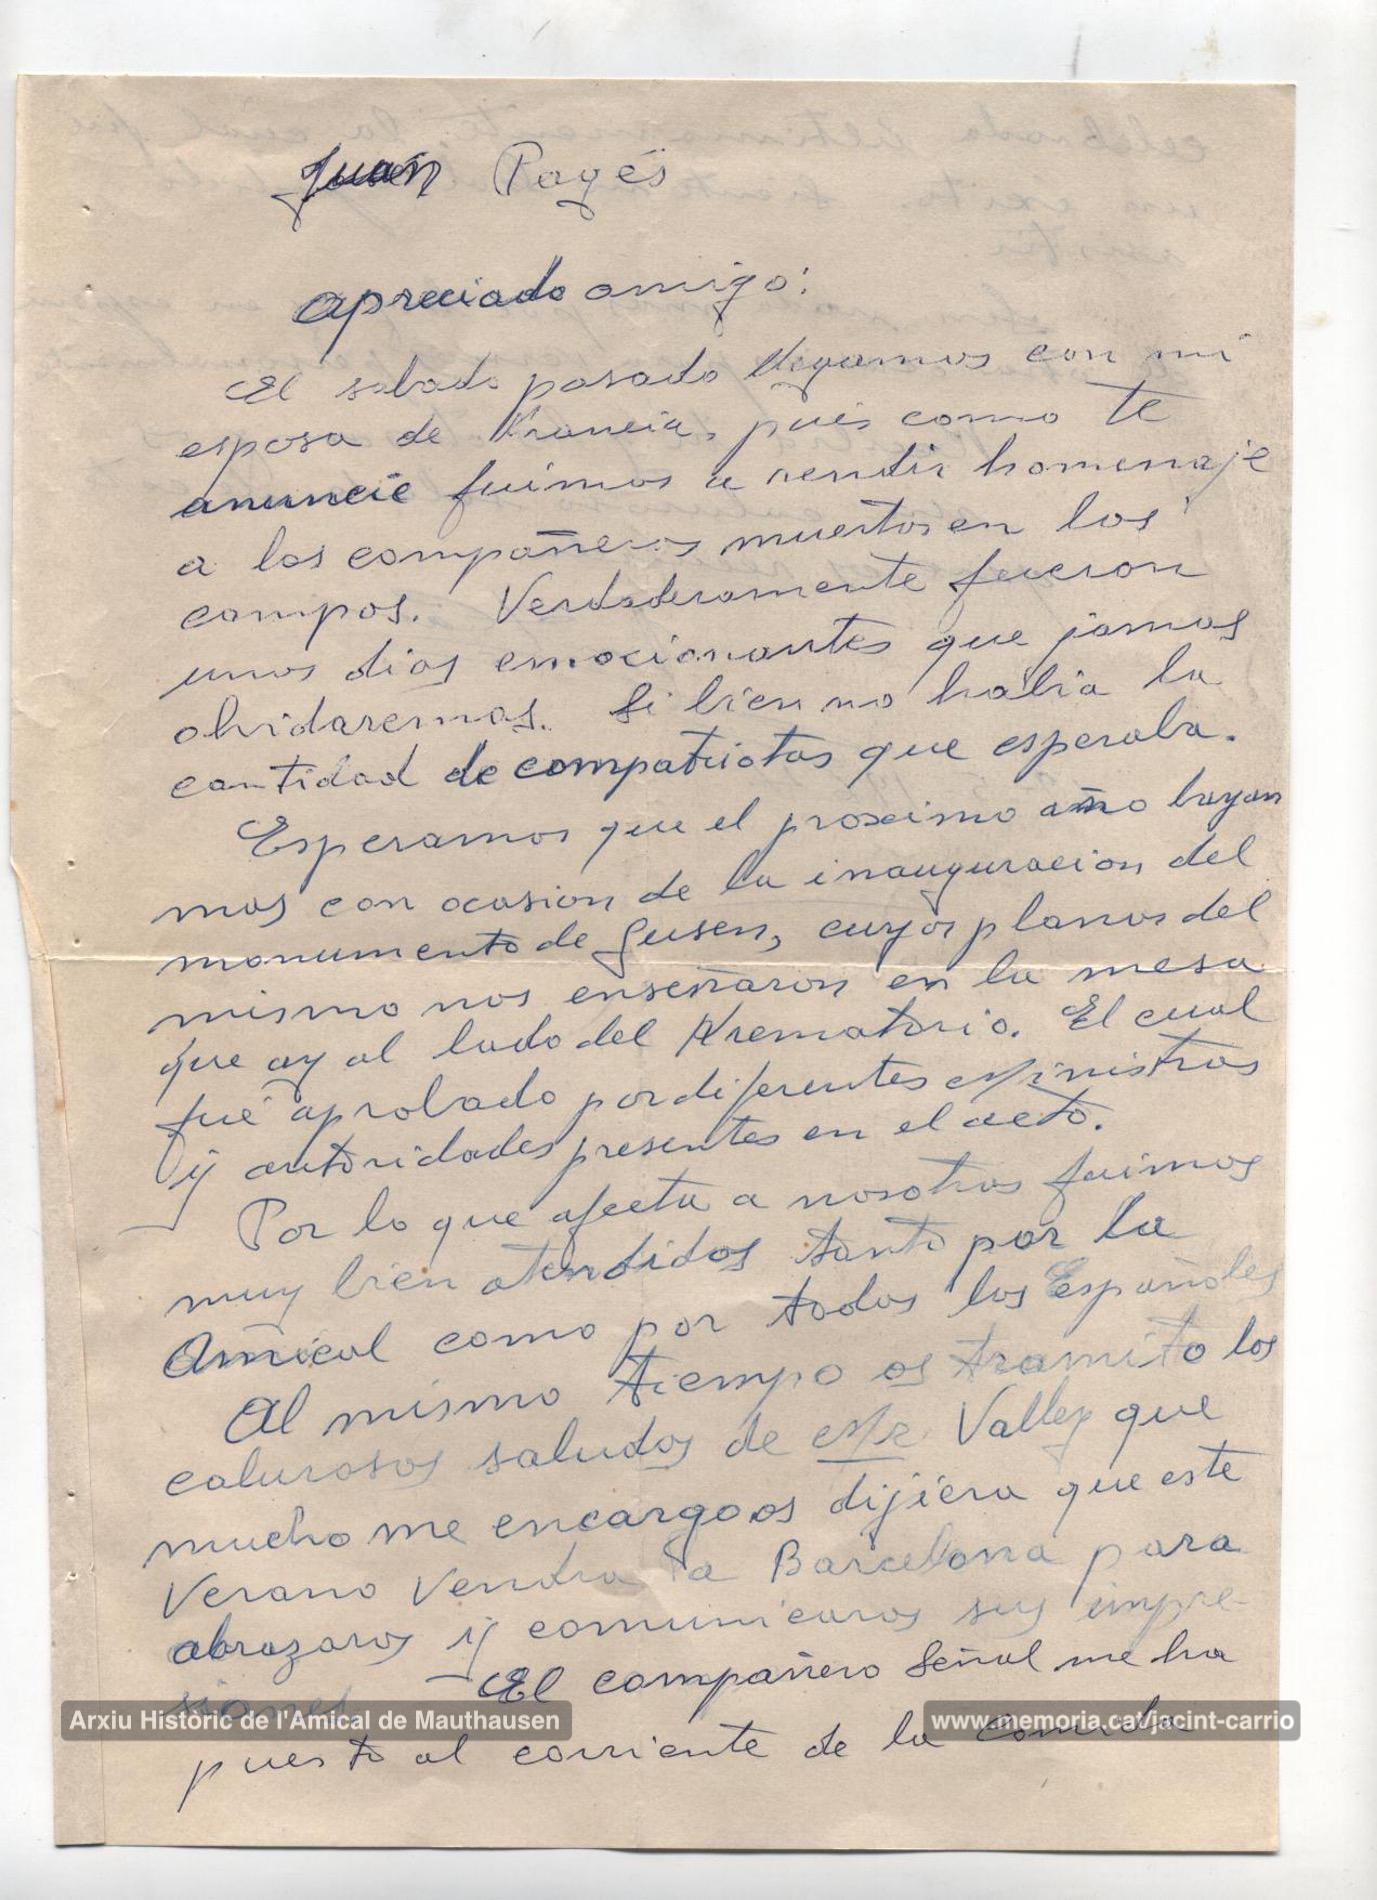 Juan Pagés
apreciado amigo:
El sabado pasado llegamos con mi
esposa de Francia, pues como te
anuncié fuimos a rendir homenaje
a los compañeros muertos en los
campos. Verdaderamente fueron
unos dias emocionantes que jamas
olvidaremos. Si bien no habia la
cantidad de compatriotas que esperaba.
Esperamos que el proximo año bayan
mas con ocasion de la inauguracion del
monumento de Gusen, cuyos planos del
mismo nos enseñaron en la mesa
que ay al lado del Krematorio. El cual
fué aprobado por diferentes Ministros
y autoridades presentes en el acto.
Por lo que afecta a nosotros fuimos
muy bien atendidos tanto por la
Amical como por todos los Españoles
Al mismo tiempo os tramito los
calurosos saludos de Mr Valley que
mucho me encargo os dijiera que este
Verano Vendra a Barcelona para
abrazaros y comunicaros sus impre-
siones. El compañero Señal me ha
puesto al corriente de la comida
Arxiu Històric de l'Amical de Mauthausen
www.memoria.cat/jacint-carrio